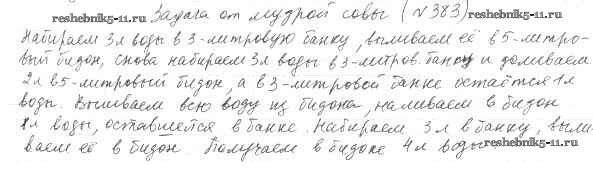 www.reshebnik5-11.ru
Задача от мудрой совы (№383) reshebnik5-11.ru
Набираем 3л воды в 3-литровую банку, выливаем её в 5-литро-
вый бидон, снова набираем 3л воды в 3-литров. банку и доливаем
2л в 5-литровый бидон, а в 3-литровой банке остаётся 1л
воды. Выливаем всю воду из бидона, наливаем в бидон
1л воды, оставшейся в банке. Набираем 3л в банку, выли-
ваем её в бидон. Получаем в бидоне 4л воды.
reshebnik5-11.ru